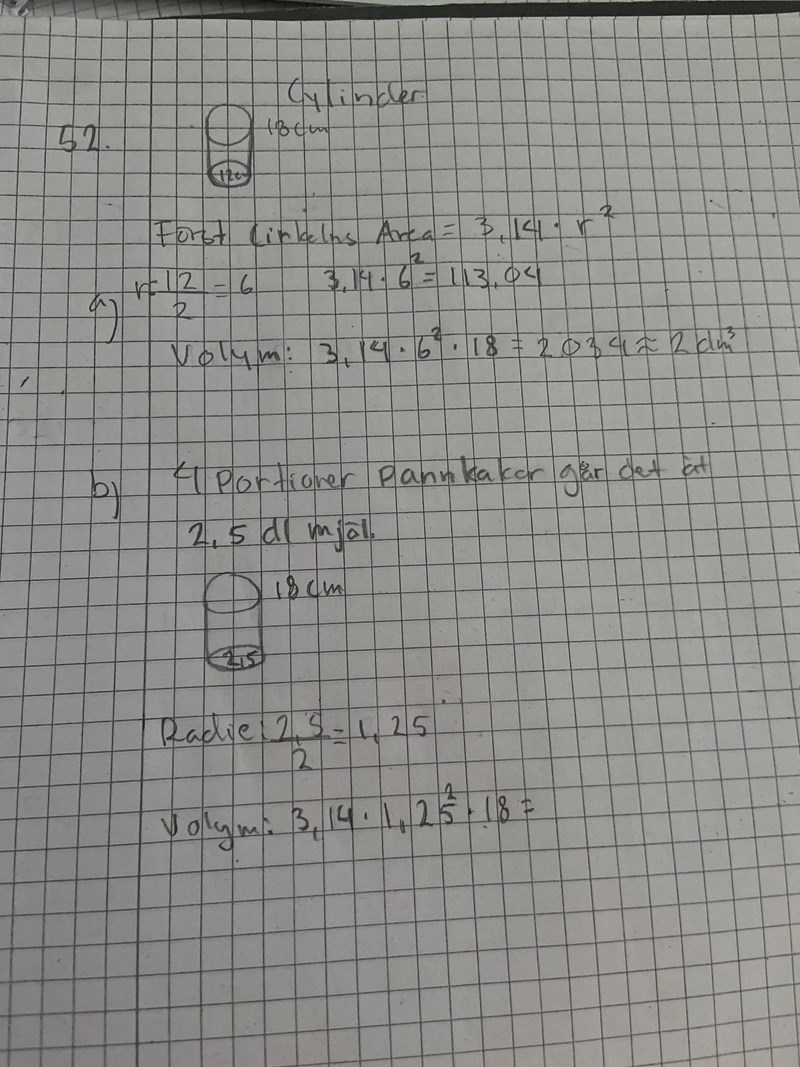 Cylinder
52.
18cm
12cm
Först Cirkelns Area = 3,14 · r²
a) r = 12/2 = 6 3,14 · 6² = 113,04
Volym: 3,14 · 6² · 18 = 2034 ≈ 2 dm³
b) 4 Portioner Pannkakor går det åt
2,5 dl mjöl.
18 cm
2,5
Radie: 2,5/2 = 1,25
Volym: 3,14 · 1,25² · 18 =